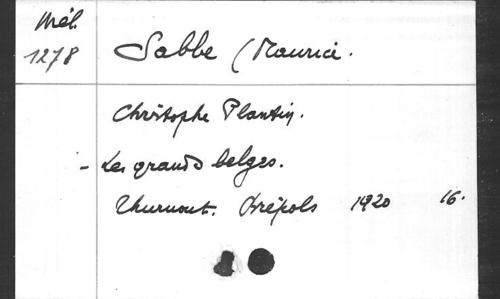 Mél.
1278
Sabbe (Maurice.
Christophe Plantin.
- Les grands belges.
Thurnout. Brépols 1920 16.